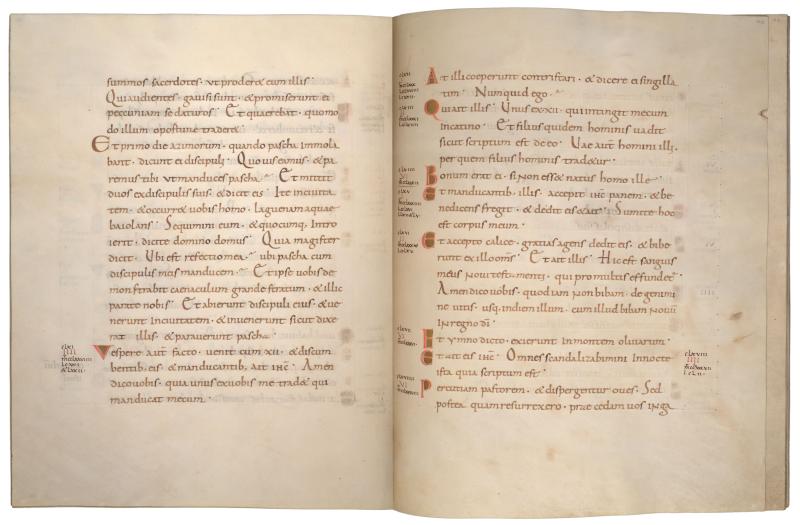 summos sacerdotes· ut proderet eum illis·
Qui audientes· gavisi sunt· & promiserunt ei
pecuniam se daturos· Et quaerebat· quomo
do illum oportune traderet·
Et primo die azimorum· quando pascha immola
bant· dicunt ei discipuli· Quo vis eamus· & pa
remus tibi ut manduces pascha· Et mittit
duos ex discipulis suis· & dicit eis· Ite in civita
tem· & occurret vobis homo· lagenam aquae
baiolans· Sequimini eum· & quocumq· intro
ierit· dicite domino domus· Quia magister
dicit· Ubi est refectio mea· ubi pascha cum
discipulis meis manducem· Et ipse vobis de
monstrabit caenaculum grande stratum· & illic
parate nobis· Et abierunt discipuli eius· & ve
nerunt in civitatem· & invenerunt sicut dixe
rat illis· & paraverunt pascha·
Vespere aut facto· venit cum xii· & discum
bentib; eis· & manducantib; ait ihc· Amen
dico vobis· quia unus ex vobis me tradet qui
manducat mecum·
At illi coeperunt contristari· & dicere ei singilla
tim· Numquid ego·
Qui ait illis· Unus ex xii· qui intingit mecum
in catino· Et filius quidem hominis vadit
sicut scriptum est de eo· Vae aut homini illi·
per quem filius hominis tradetur·
Bonum erat ei· si non esset natus homo ille·
Et manducantib; illis· accepit ihc panem· & be
nedicens fregit· & dedit eis & ait· Sumite hoc
est corpus meum·
Et accepto calice· gratias agens dedit eis· & bibe
runt ex illo oms· Et ait illis· Hic est sanguis
meus novi testamenti· qui pro multis effundetur·
Amen dico vobis· quod iam non bibam· de genimi
ne vitis· usq· in diem illum· cum illud bibam novu
in regno di·
Et ymno dicto· exierunt in montem olivarum·
Et ait eis ihc· Omnes scandalizabimini in nocte
ista quia scriptum est·
Percutiam pastorem· & dispergentur oves· Sed
postea quam resurrexero· praecedam vos in ga